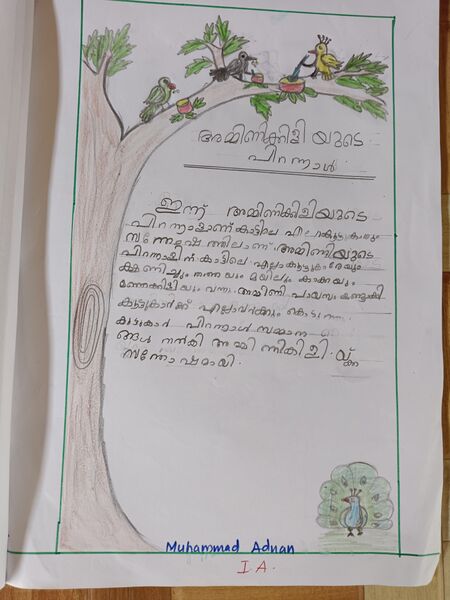 അമ്മിണിക്കിളിയുടെ
പിറന്നാൾ
ഇന്ന് അമ്മിണിക്കിളിയുടെ
പിറന്നാളാണ് കാട്ടിലെ എല്ലാ കൂട്ടുകാരും
സന്തോഷത്തിലാണ് അമ്മിണിയുടെ
പിറന്നാളിന് കാട്ടിലെ എല്ലാ കൂട്ടുകാരേയും
ക്ഷണിച്ചു തത്തയും മയിലും കാക്കയും
മഞ്ഞക്കിളിയും വന്നു. അമ്മിണി പായസം ഉണ്ടാക്കി
കൂട്ടുകാർക്ക് എല്ലാവർക്കും കൊടുത്തു
കൂട്ടുകാർ പിറന്നാൾ സമ്മാന
ങ്ങൾ നൽകി അമ്മിണികിളിയ്ക്ക്
സന്തോഷമായി.
Muhammad Adnan
I A.